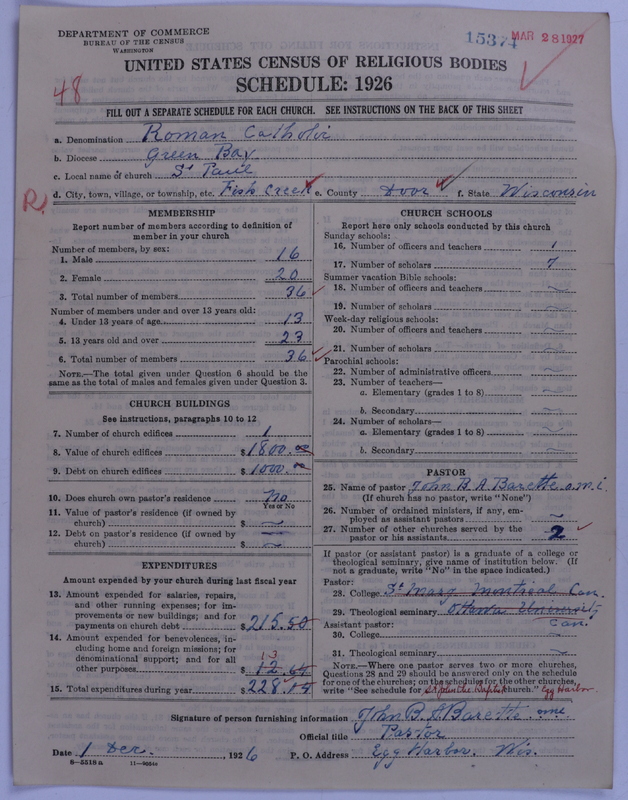 DEPARTMENT OF COMMERCE
BUREAU OF THE CENSUS
WASHINGTON
15374 MAR 28 1927
UNITED STATES CENSUS OF RELIGIOUS BODIES
SCHEDULE: 1926
48
FILL OUT A SEPARATE SCHEDULE FOR EACH CHURCH. SEE INSTRUCTIONS ON THE BACK OF THIS SHEET
a. Denomination Roman Catholic
b. Diocese Green Bay
c. Local name of church St Paul
d. City, town, village, or township, etc. Fish Creek e. County Door f. State Wisconsin
R
MEMBERSHIP
Report number of members according to definition of
member in your church
Number of members, by sex:
1. Male 16
2. Female 20
3. Total number of members 36
Number of members under and over 13 years old:
4. Under 13 years of age 13
5. 13 years old and over 23
6. Total number of members 36
NOTE.—The total given under Question 6 should be
same as the total of males and females given under Question 3.
CHURCH BUILDINGS
See instructions, paragraphs 10 to 12
7. Number of church edifices 1
8. Value of church edifices $1800.00
9. Debt on church edifices $1000.00
10. Does church own pastor's residence No
Yes or No
11. Value of pastor's residence (if owned by
church) $
12. Debt on pastor's residence (if owned by
church) $
EXPENDITURES
Amount expended by your church during last fiscal year
13. Amount expended for salaries, repairs,
and other running expenses; for im-
provements or new buildings; and for
payments on church debt $215.50
14. Amount expended for benevolences, in-
cluding home and foreign missions; for
denominational support; and for all
other purposes 13
$12.64
15. Total expenditures during year $228.14
CHURCH SCHOOLS
Report here only schools conducted by this church
Sunday schools:
16. Number of officers and teachers 1
17. Number of scholars 7
Summer vacation Bible schools:
18. Number of officers and teachers
19. Number of scholars
Week-day religious schools:
20. Number of officers and teachers
21. Number of scholars
Parochial schools:
22. Number of administrative officers
23. Number of teachers—
a. Elementary (grades 1 to 8)
b. Secondary
24. Number of scholars—
a. Elementary (grades 1 to 8)
b. Secondary
PASTOR
25. Name of pastor John B. A. Barette o.m.i.
(If church has no pastor, write "None")
26. Number of ordained ministers, if any, em-
ployed as assistant pastors
27. Number of other churches served by the
pastor or his assistants 2
If pastor (or assistant pastor) is a graduate of a college or
theological seminary, give name of institution below. (If
not a graduate, write "No" in the space indicated.)
Pastor:
28. College St Mary Montreal Can.
29. Theological seminary Ottawa University
Assistant pastor: Can.
30. College
31. Theological seminary
NOTE.—Where one pastor serves two or more churches,
Questions 28 and 29 should be answered only on the schedule
for one of the churches; on the schedules for the other churches,
write "See schedule for St John the Baptist church." Egg Harbor
Signature of person furnishing information John B. A. Barette omi
Official title Pastor
Date 1 Dec. , 1926 P. O. Address Egg Harbor. Wis.
8—5518 a